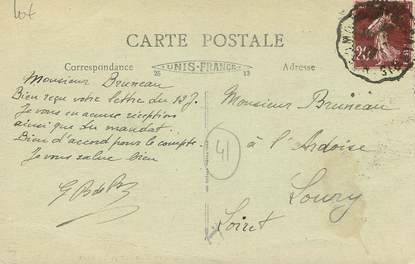 lot
CARTE POSTALE
Correspondance
UNIS-FRANCE
25
13
Adresse
Monsieur Bruneau
Bien reçu votre lettre du 13 J.
Je vous en accuse réception
ainsi que du mandat.
Bien d'accord pour le compte.
Je vous salue bien
Monsieur Bruneau
à l'Ardoise
Loury
Loiret
41